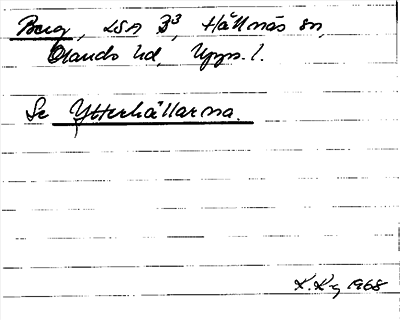 Berg, LSA B3, Hållnäs sn,
Olands hd, Upps. l.
Se Ytterhällarna.
1968